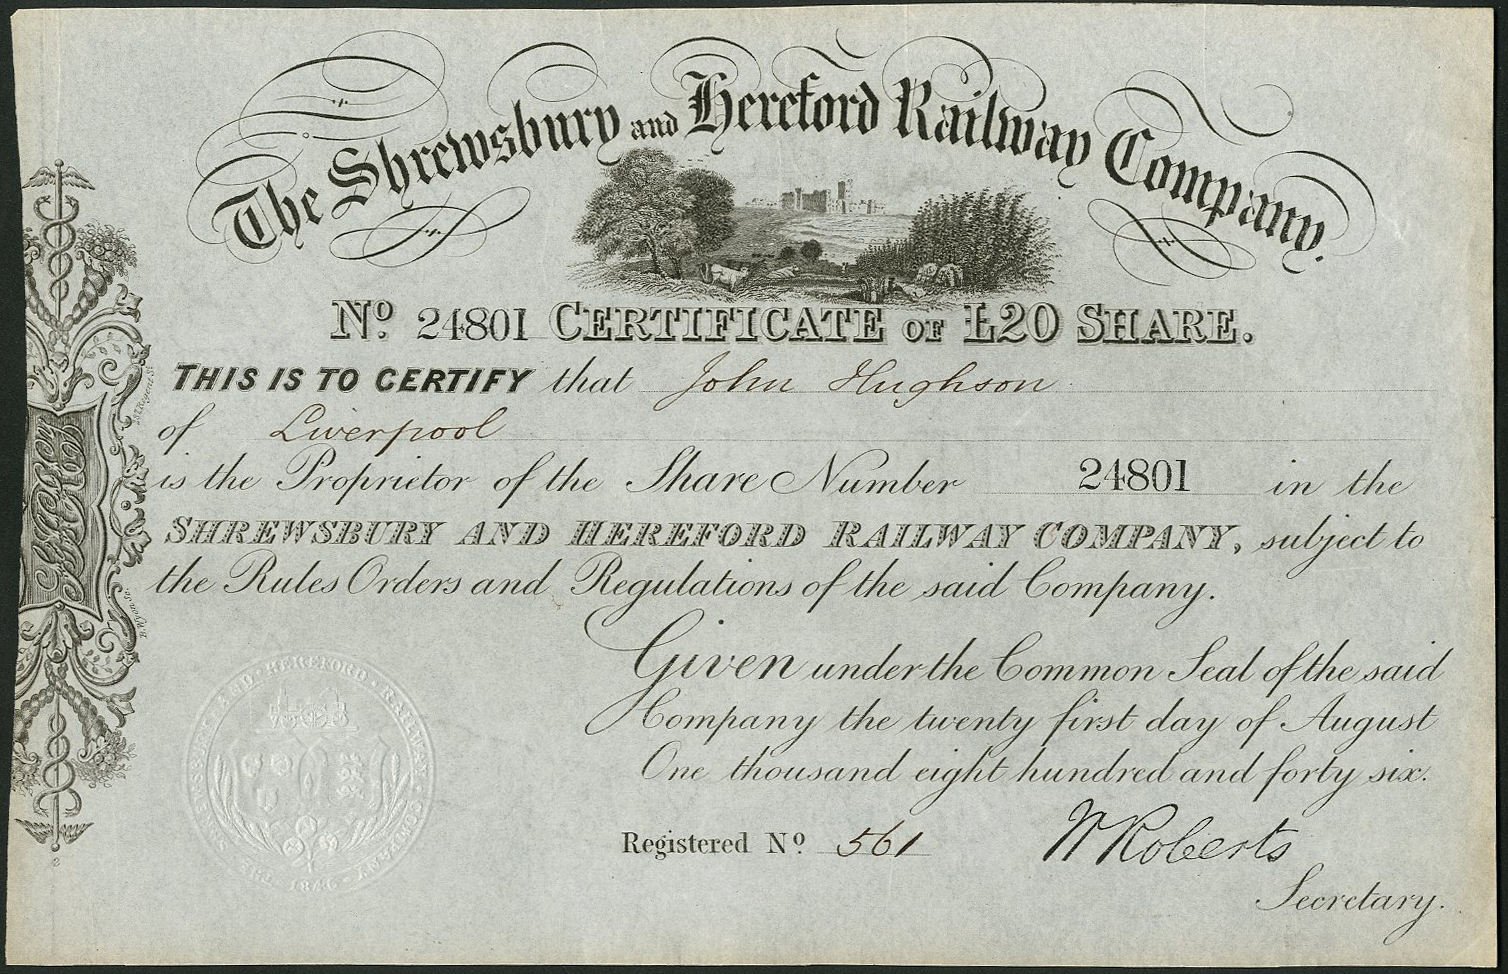 The Shrewsbury and Hereford Railway Company.
No. 24801 CERTIFICATE OF £20 SHARE.
THIS IS TO CERTIFY that John Hughson
of Liverpool
is the Proprietor of the Share Number 24801 in the
SHREWSBURY AND HEREFORD RAILWAY COMPANY, subject to
the Rules Orders and Regulations of the said Company.
Given under the Common Seal of the said
Company the twenty first day of August
One thousand eight hundred and forty six.
Registered No. 561
W Roberts
Secretary.
SHREWSBURY AND HEREFORD RAILWAY COMPANY 1846